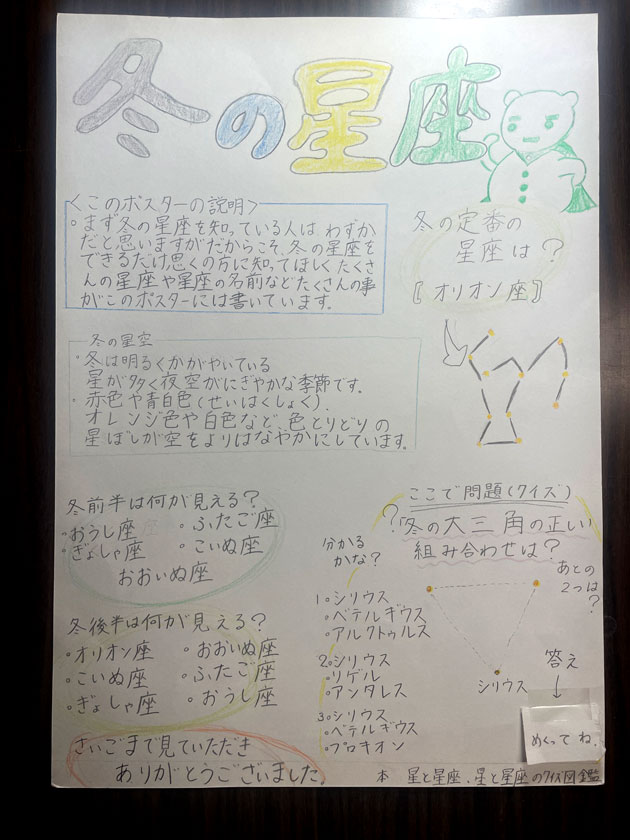 冬の星座
<このポスターの説明>
。まず冬の星座を知っている人は、わずか
だと思いますがだからこそ、冬の星座を
できるだけ思くの方に知ってほしくたくさ
んの星座や星座の名前などたくさんの事
がこのポスターには書いています。
冬の定番の
星座は?
〖オリオン座〗
冬の星空
・冬は明るくかがやいている
星が多く夜空がにぎやかな季節です。
・赤色や青白色(せいはくしょく)、
オレンジ色や白色など、色とりどりの
星ぼしが空をよりはなやかにしています。
冬前半は何が見える?
・おうし座
・ふたご座
・ぎょしゃ座
・こいぬ座
おおいぬ座
冬後半は何が見える?
・オリオン座
・おおいぬ座
・こいぬ座
・ふたご座
・ぎょしゃ座
・おうし座
さいごまで見ていただき
ありがとうございました。
ここで問題(クイズ)
?
冬の大三角の正しい
組み合わせは?
分かる
かな?
1。シリウス
・ベテルギウス
・アルクトゥルス
2。シリウス
・リゲル
・アンタレス
3。シリウス
・ベテルギウス
・プロキオン
あとの
2つは
?
シリウス
答え
↓
めくってね。
本 星と星座、星と星座のクイズ図鑑